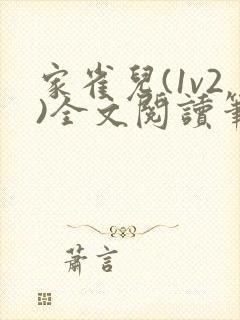 家雀兒(1v2
)全文閱讀筆
蕭言